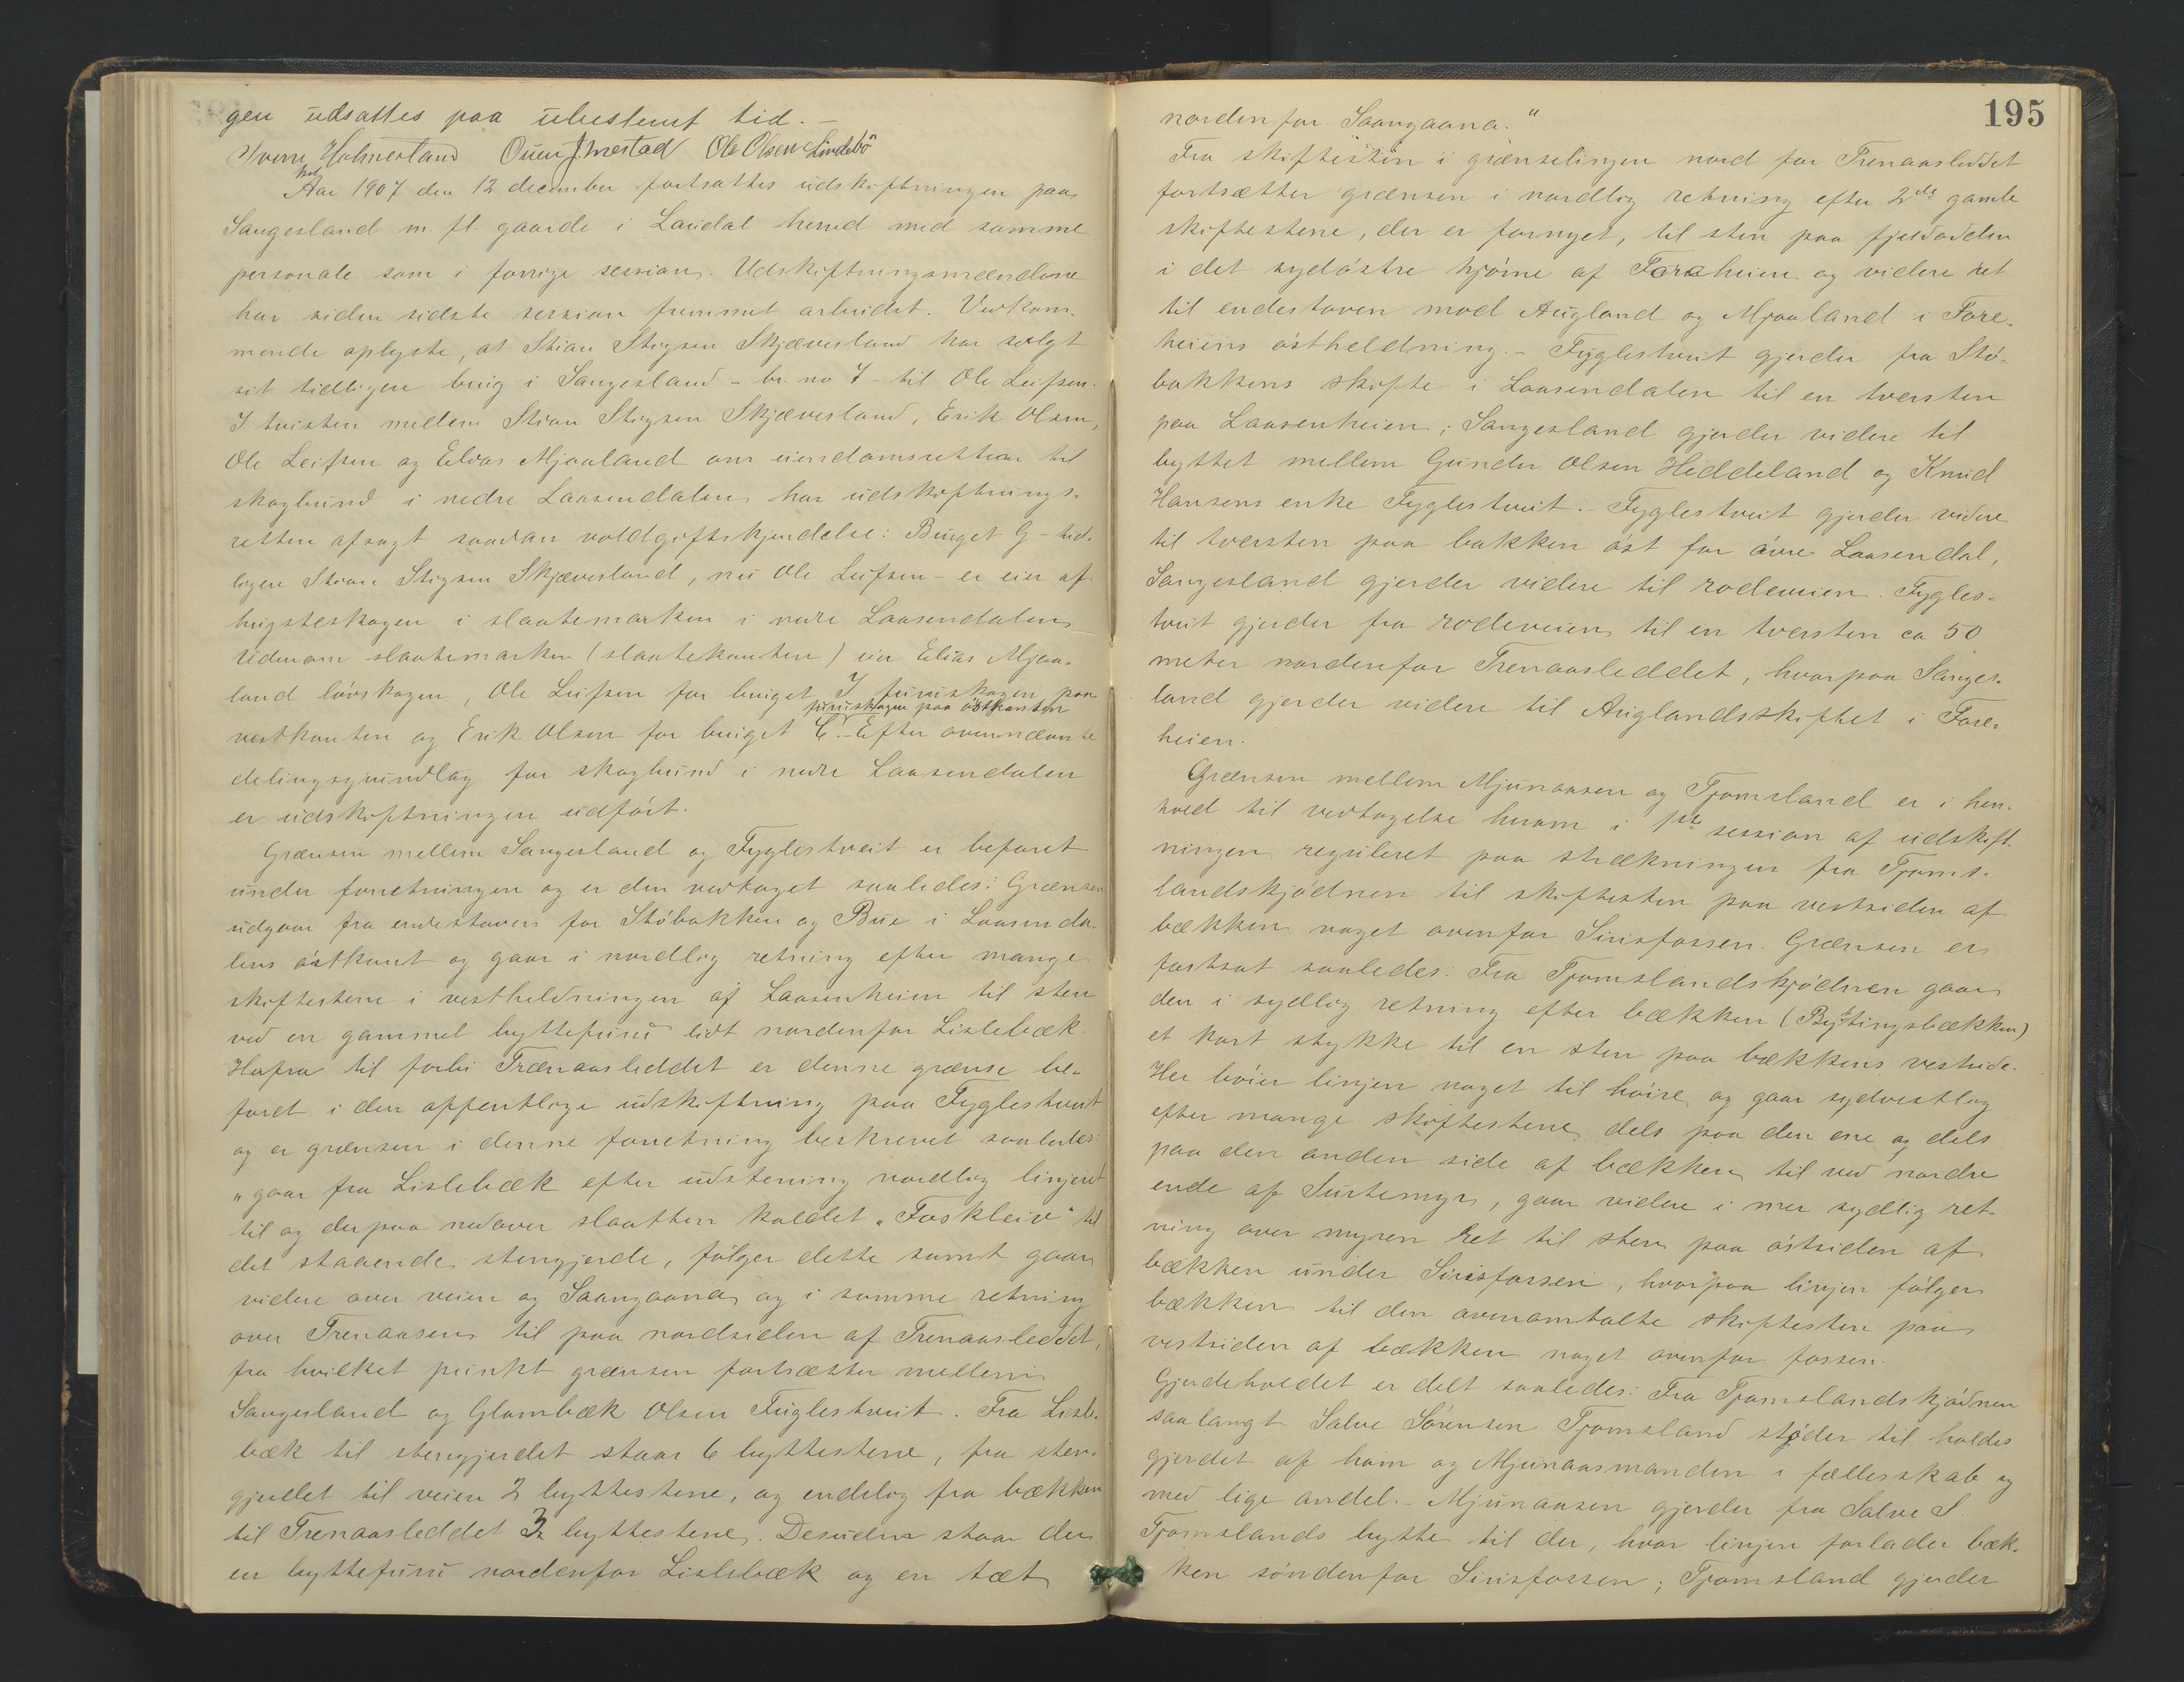 gen udsattes paa ubestemt tid. –
Sverre Holmesland Ouen J. Imestad Ole Olsen Lindebö
Aar 1907 den 12 december fortsattes udskiftningen paa
Sangesland m. fl. gaarde i Laudal herred med samme
personale som i forrige session. Udskiftningsmændene
har siden sidste session fremmet arbeidet. Vedkom-
mende oplyste, at Stian Stigsen Skjævesland har solgt
sit tidligere brug i Sangesland – br. no 7 – til Ole Leifsen.
I tvisten mellem Stian Stigsen Skjævesland, Erik Olsen,
Ole Leifsen og Elias Mjaaland om eiendomsretten til
skogbund i nedre Laasendalen har udskiftnings-
retten afsagt saadan voldgiftskjendelse: Bruget G – tid-
ligere Stian Stigsen Skjævesland, nu Ole Leifsen – er eier af
hugsteskogen i slaatemarken i nedre Laasendalen
Udenom slaatemarken (slaatekanten) eier Elias Mjaa-
land lövskogen, Ole Leifsen for bruget I furuskogen paa
furuskogen paa östkanten
vestkanten og Erik Olsen for bruget C. – Efter ovennævnte
delingsgrundlag for skogbund i nedre Laasendalen
er udskiftningen udfört.
Grænsen mellem Sangesland og Fyglestveit er befaret
under forretningen og er den vedtaget saaledes: Grænsen
udgaar fra endestaven for Stöbakken og Bue i Laasenda-
lens östkant og gaar i nordlig retning efter mange
skiftestene i vestheldningen af Laasenheien til sten
ved en gammel byttefuru lidt nordenfor Lislebæk.
Herfra til forbi Trænaasleddet er denne grænse be-
faret i den offentlige udskiftning paa Fyglestveit
og er grænsen i denne forretning beskrevet saaledes:
"gaar fra Lislebæk efter udstening nordlig linjeret
til og derpaa nedover slaatten kaldet "Foskleiv" til
det staaende stengjerde, fölger dette samt gaar
videre over veien og Saangaana og i samme retning
over Trenaasen til paa nordsiden af Trenaasleddet,
fra hvilket punkt grænsen fortsætter mellem
Sangesland og Glambæk Olsen Fuglestveit. Fra Lisle-
bæk til stengjerdet staar 6 byttestene, fra sten-
gjerdet til veien 2 byttestene, og endelig fra bækken
til Trenaasleddet 3 byttestene. Desuden staar der
en byttefuru nordenfor Lislebæk og en tæt
195
nordenfor Saangaana."
Fra skiftesten i grænselinjen nord for Trenaasleddet
fortsætter grænsen i nordlig retning efter 2de gamle
skiftestene, der er fornyet, til sten paa fjeldodden
i det sydöstre hjörne af Foreheien og videre ret
til endestaven mod Augland og Mjaaland i Fore-
heiens östheldning. – Fyglestveit gjerder fra Stö-
bakkens skifte i Laasendalen til en tversten
paa Laasenheien; Sangesland gjerder videre til
byttet mellem Gunder Olsen Heddeland og Knud
Hansens enke Fyglestveit. – Fyglestveit gjerder videre
til tversten paa bakken öst for övre Laasendal,
Sangesland gjerder videre til rodeveien. Fygles-
tveit gjerder fra rodeveien til en tversten ca 50
meter nordenfor Trenaasleddet, hvorpaa Sanges-
land gjerder videre til Auglandsskiftet i Fore-
heien.
Grænsen mellem Mjunaasen og Tjomsland er i hen-
hold til vedtagelse herom i 1ste session af udskift-
ningen reguleret paa strækningen fra Tjoms-
landskjödnen til skiftesten paa vestsiden af
bækken noget ovenfor Sirisfossen. Grænsen er
fortsat saaledes: Fra Tjomslandskjödnen gaar
den i sydlig retning efter bækken (Bystingsbækken)
et kort stykke til en sten paa bækkens vestside.
Her böier linjen noget til höire og gaar sydvestlig
efter mange skiftestene dels paa den ene og dels
paa den anden side af bækken til ved nordre
ende af Surtemyr, gaar videre i mer sydlig ret-
ning over myren ret til sten paa östsiden af
bækken under Sirisfossen, hvorpaa linjen fölger
bækken til den ovenomtalte skiftesten paa
vestsiden af bækken noget ovenfor fossen.
Gjerdeholdet er delt saaledes: Fra Tjomslandskjödnen
saalangt Salve Sörensen Tjomsland stöder til holdes
gjerdet af ham og Mjunaasmanden i fællesskab og
med lige andel. – Mjunaasen gjerder fra Salve S.
Tjomslands bytte til der, hvor linjen forlader bæk-
ken söndenfor Sirisfossen; Tjomsland gjerder